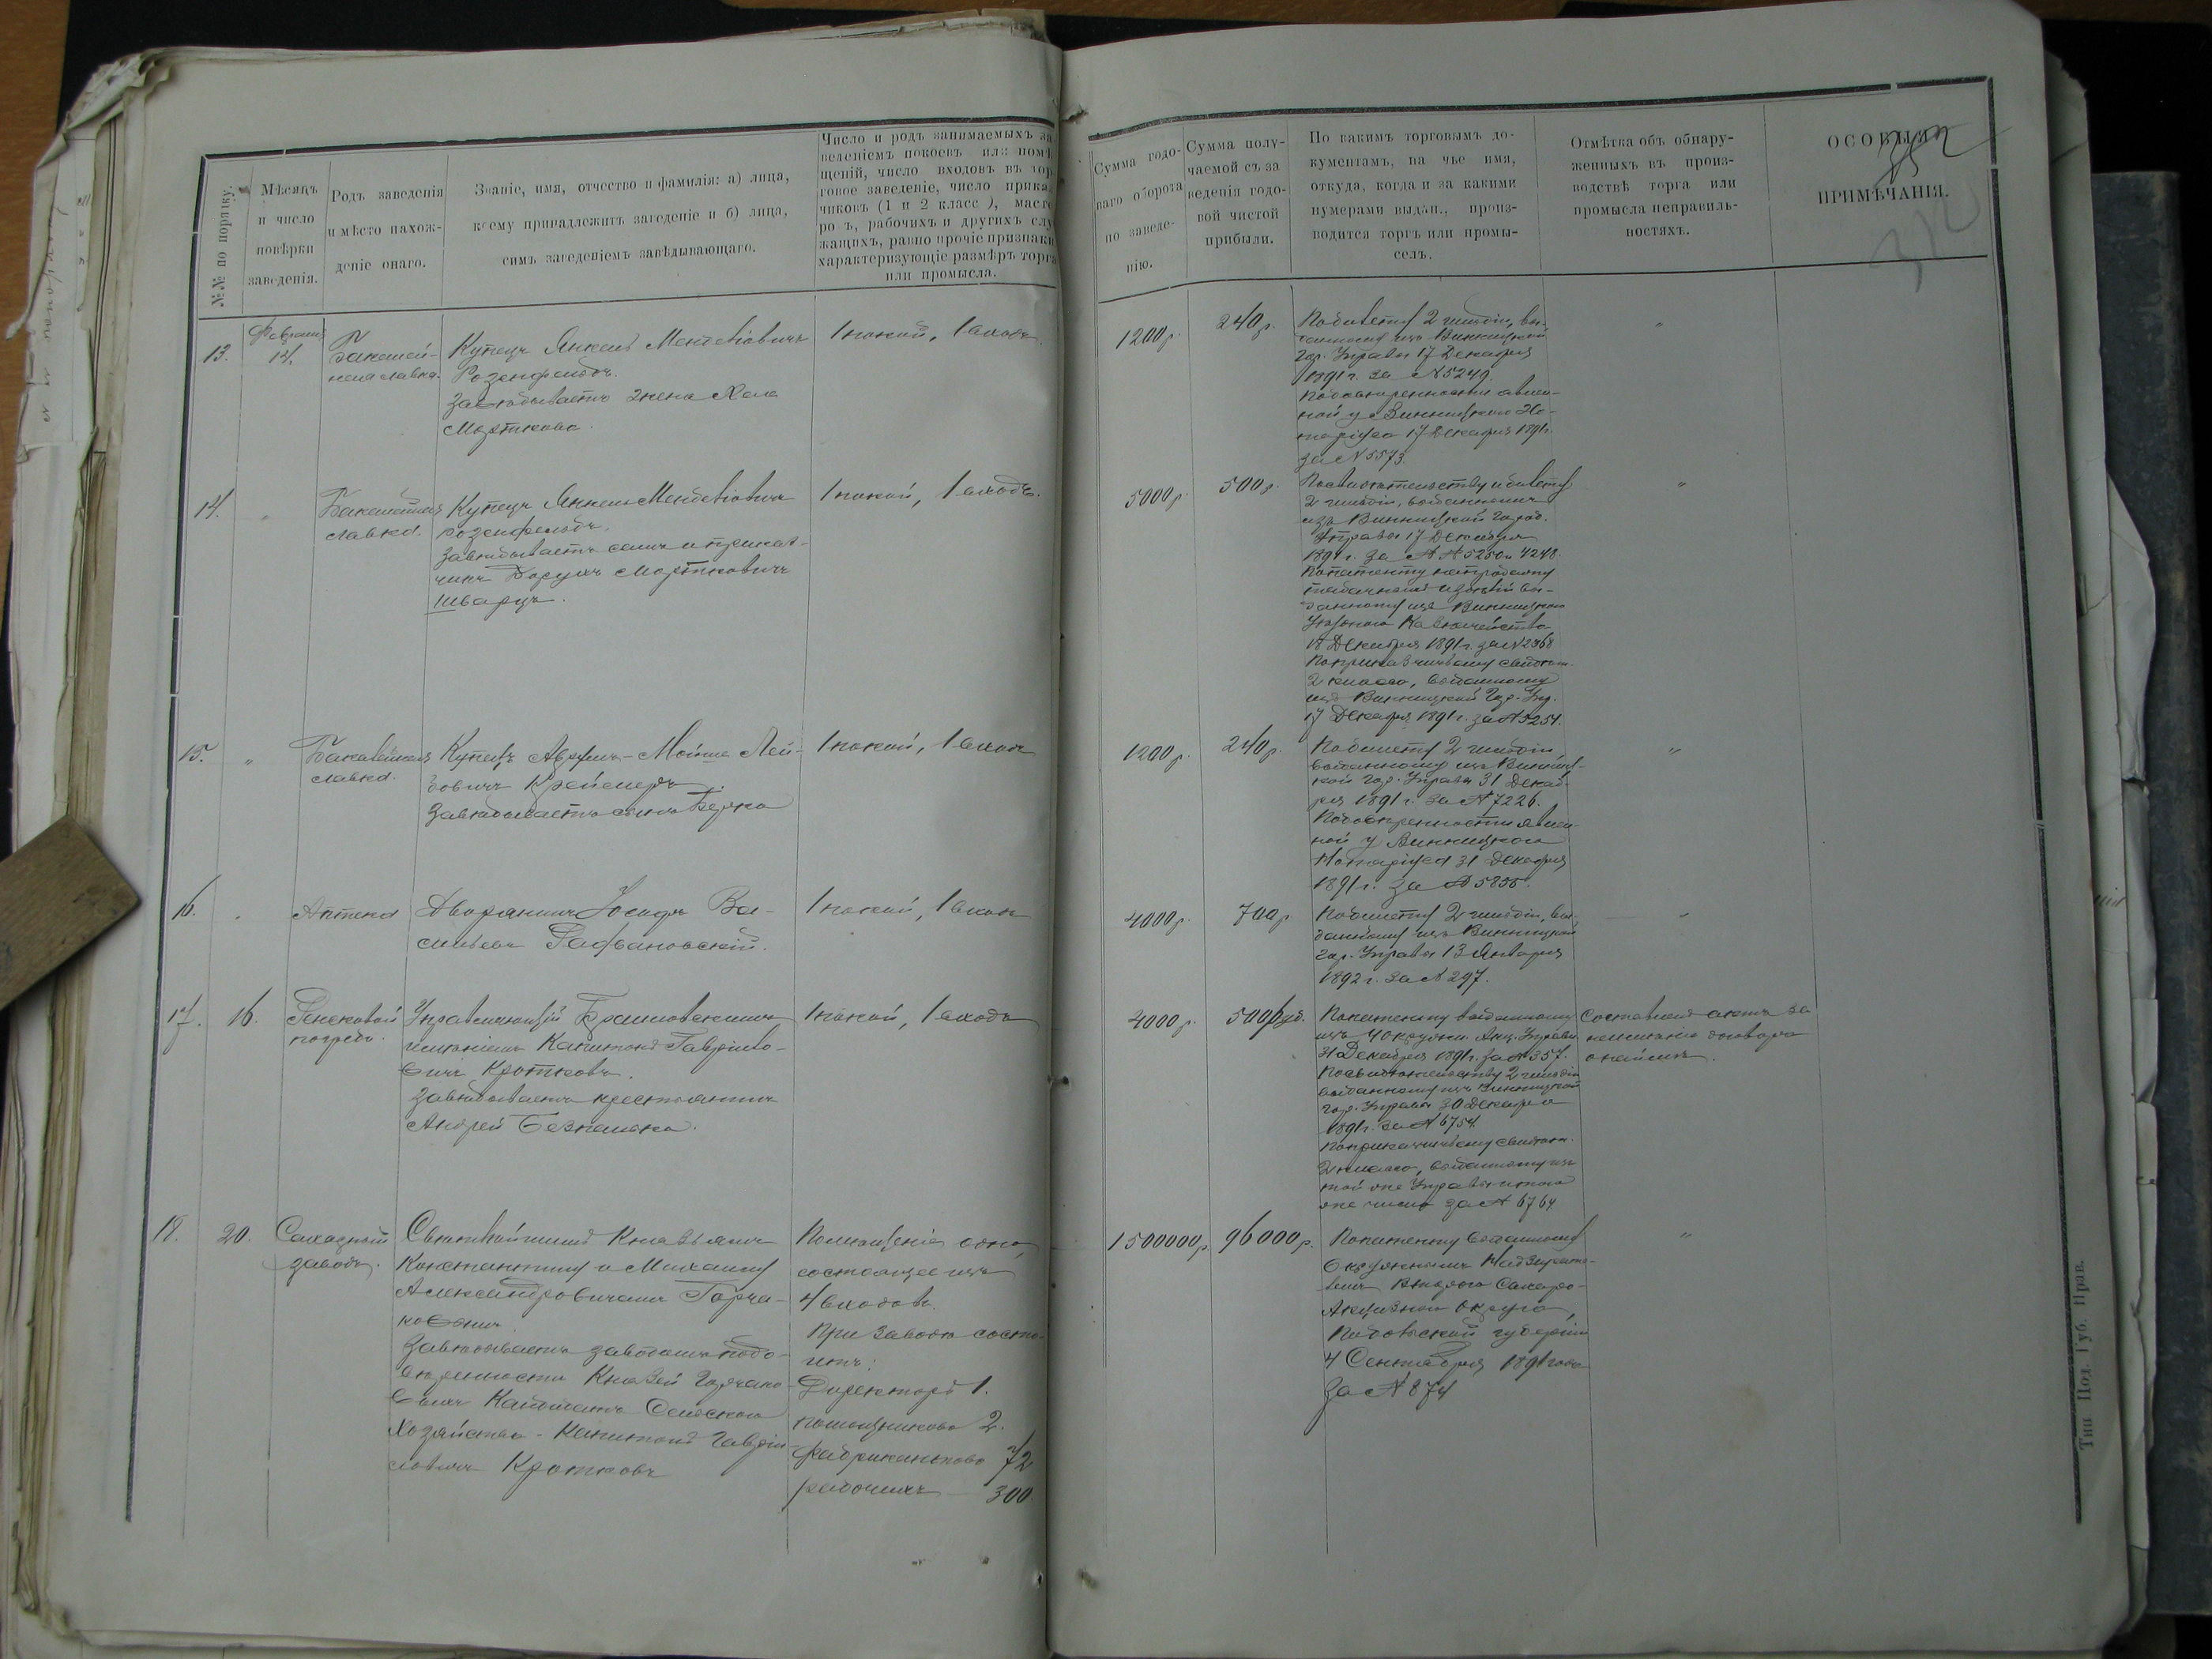 №№ по порядку.
Мѣсяцъ
и число
повѣрки
заведенія.
Родъ заведенія
и мѣсто нахож-
деніе онаго.
Званіе, имя, отчество и фамилія: а) лица,
коему принадлежитъ заведеніе и б) лица,
симъ заведеніемъ завѣдывающаго.
Число и родъ занимаемыхъ за
веденіемъ покоевъ или помѣ
щеній, число входовъ въ тор
говое заведеніе, число прика
чиковъ (1 и 2 класс ), масте
ро ъ, рабочихъ и другихъ слу
жащихъ, равно прочіе признаки
характеризующіе размѣръ торга
или промысла.
Сумма годо-
ваго оборота
по заведе-
нію.
Сумма полу-
чаемой съ за
веденія годо-
вой чистой
прибыли.
По какимъ торговымъ до-
кументамъ, на чье имя,
откуда, когда и за какими
нумерами выдан., произ-
водится торгъ или промы-
селъ.
Отмѣтка объ обнару-
женныхъ въ произ-
водствѣ торга или
промысла неправиль-
ностяхъ.
ОСОБЫЯ
ПРИМѢЧАНІЯ.
312
13.
14.
Бакалей-
ная лавка.
Купецъ Янкель Менделіовичъ
Розенфельдъ.
Завѣдываетъ жена Хая
Морткова.
1 покой, 1 входъ.
1200 р.
240 р.
По билету 2 гильдіи, вы-
данному изъ Винницкой
Гор. Управы 17 Декабря
1891 г. за № 5249.
По довѣренности явлен-
ной у Винницкаго Но-
таріуса 17 Декабря 1891 г.
за № 5573.
"
14.
"
Бакалейная
лавка.
Купецъ Янкель Менделіовичъ
Розенфельдъ.
Завѣдываетъ самъ и прикащ-
чикъ Борухъ Мортковичъ
Шварцъ.
1 покой, 1 входъ.
5000 р.
500 р.
По свидѣтельству и билету
2 гильдіи, выданнымъ
изъ Винницкой Город.
Управы 17 Декабря
1891 г. за №№ 5250 и 4248.
По патенту на продажу
табачныхъ издѣлій вы-
данному изъ Винницкаго
Уѣзднаго Казначейства
18 Декабря 1891 г. за № 2368
По прикащичьему свидѣт.
2 класса, выданному
изъ Винницкой Гор. Упр.
17 Декабря 1891 г. за № 5251.
"
15.
"
Бакалейная
лавка.
Купецъ Аврумъ-Мойше Лей-
бовичъ Крейнеръ
Завѣдываетъ сынъ Берко
1 покой, 1 входъ
1200 р.
240 р.
По билету 2 гильдіи,
выданному изъ Винниц-
кой Гор. Управы 31 Декаб-
ря 1891 г. за № 7226.
По довѣренности явлен-
ной у Винницкаго
Нотаріуса 31 Декабря
1891 г. за № 5835.
"
16.
"
Аптека
Дворянинъ Іосифъ Ва-
сильевъ
1 покой, 1 входъ
4000 р.
700 р
По билету 2 гильдіи, вы-
данному изъ Винницкой
Гор. Управы 13 Января
1892 г. за № 297.
"
17.
16.
Ренсковой
погребъ.
Управляющій Браиловскимъ
имѣніемъ Капитонъ Гаврило-
вичъ Кротковъ.
Завѣдываетъ крестьянинъ
Андрей
1 покой, 1 входъ
4000 р.
500 руб.
По патенту выданному
изъ 4 Окружн. Акц. Управы
31 Декабря 1891 г. за № 357.
По свидѣтельству 2 гильдіи
выданному изъ Винницкой
Гор. Управы 30 Декабря
1891 г. за № 6754.
По прикащичьему свидѣт.
2 класса, выданному изъ
той же Управы и того
же числа за № 6764
Составленъ актъ за
неимѣніе договора
о наймѣ.
18.
20.
Сахарный
заводъ.
Свѣтлѣйшимъ Князьямъ
Константину и Михаилу
Александровичамъ Горча-
ковымъ
Завѣдываетъ заводомъ по до-
вѣренности Князей Горчако-
выхъ Кандидатъ Сельскаго
Хозяйства - Капитонъ Гаври-
ловичъ Кротковъ
Помѣщеніе одно,
состоящее изъ
4 входовъ.
При заводѣ состо-
итъ:
Директоръ 1.
помощниковъ 2.
72
рабочихъ — 300
1500000 р.
96000 р.
По патенту выданному
Окружнымъ Надзирате-
лемъ Втораго Сахаро-
Акцизнаго Округа,
Подольской губерніи
4 Сентября 1891 года
За № 874
"
Тип. Под. Губ. Прав.